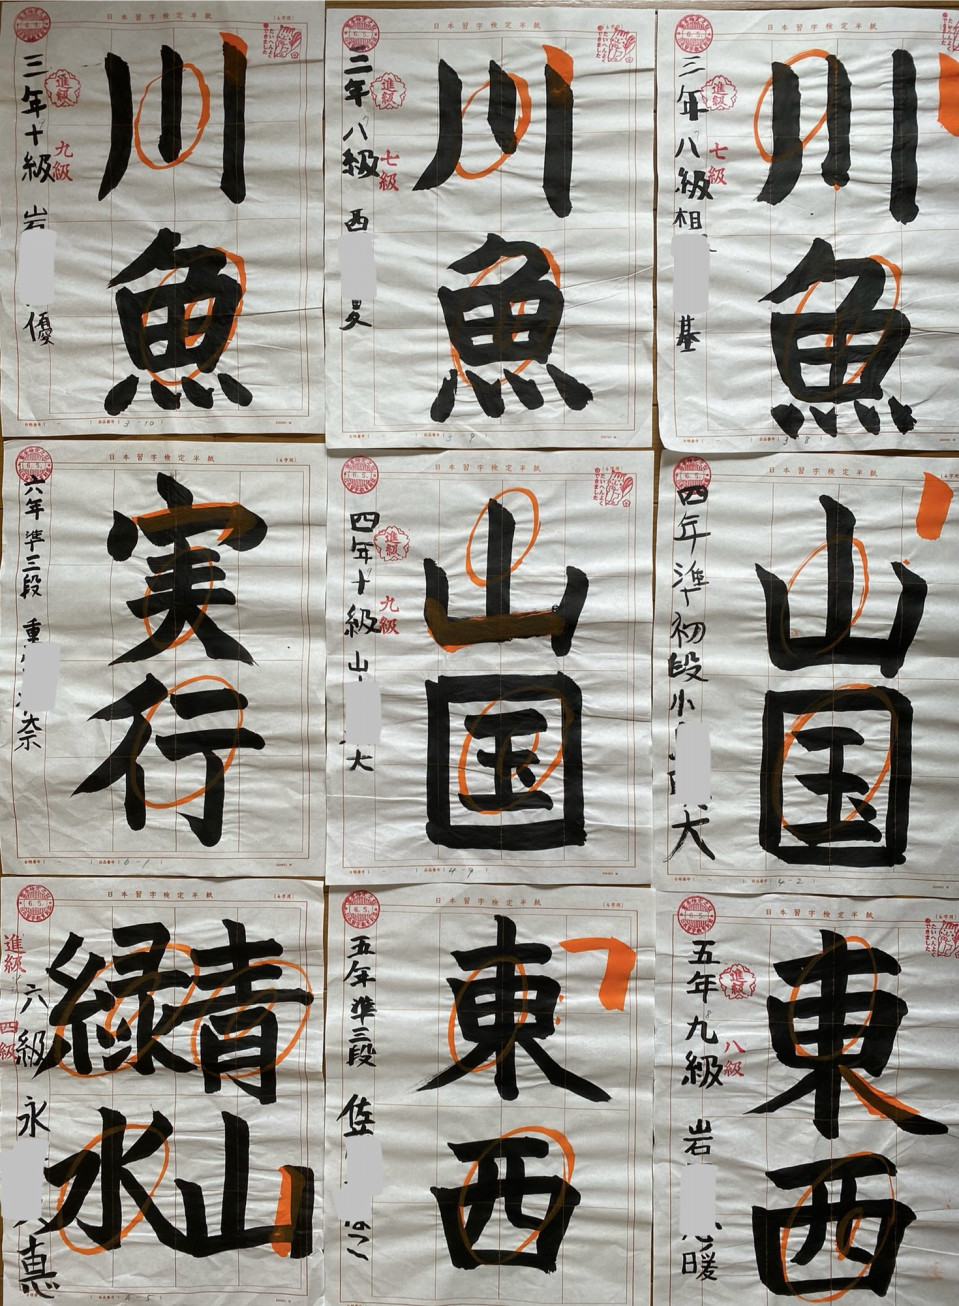 日本習字検定半紙
川
魚
三年十級 岩 優
進級
九級
3-10
日本習字検定半紙
川
魚
二年八級 西 夏
進級
七級
3-9
日本習字検定半紙
川
魚
三年八級 相 基
進級
七級
3-8
日本習字検定半紙
実
行
六年準三段 重 奈
6-1
日本習字検定半紙
山
国
四年十級 山 大
進級
九級
4-9
日本習字検定半紙
山
国
四年準初段 小 犬
4-2
日本習字検定半紙
青山
緑水
六級 永 恵
進級
四級
日本習字検定半紙
東
西
五年準三段 佐 こ
日本習字検定半紙
東
西
五年九級 岩 暖
進級
八級